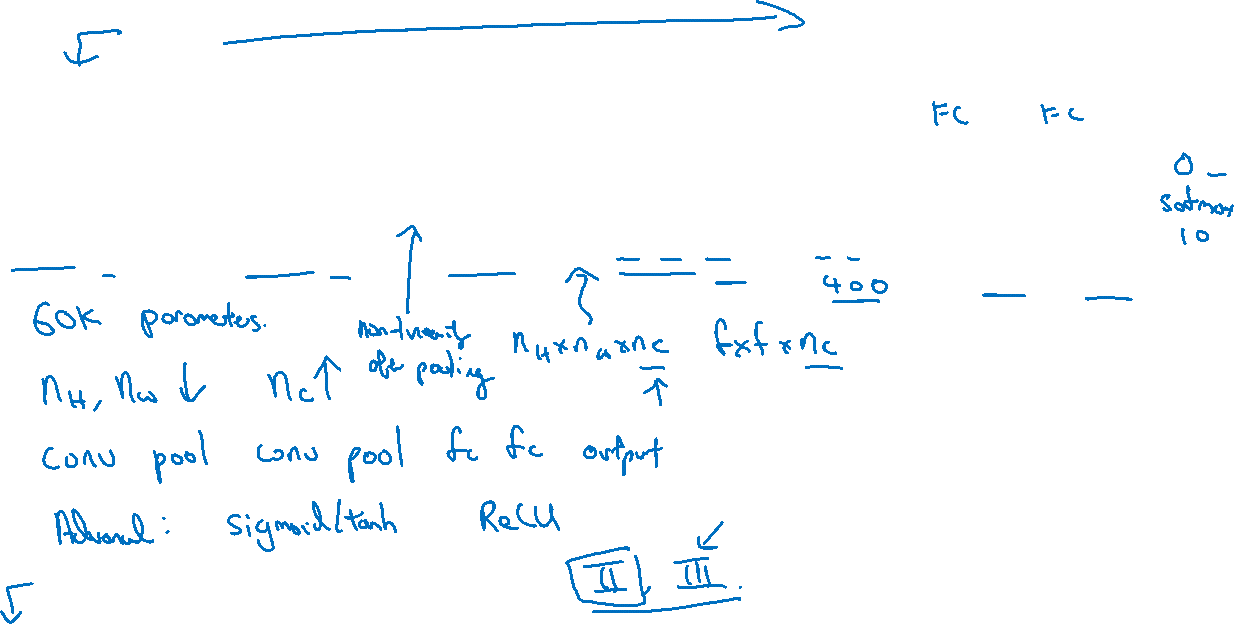 FC FC
O
softmax
10
400
60K parameters.
non-linearity
after pooling
nH × nW × nC f×f × nC
nH, nW ↓ nC ↑
conv pool conv pool fc fc output
Advanced: sigmoid/tanh ReLU
II, III.